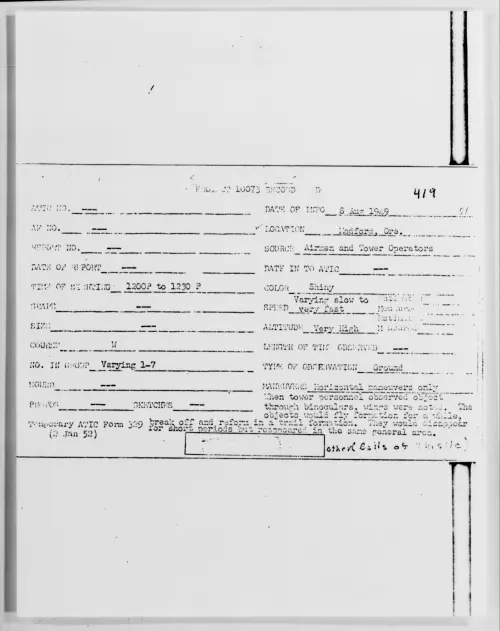 PROJECT 10073 RECORD
419
ATIC NO. ---
DATE OF INFO 8 Aug 1949
AF NO. ---
LOCATION Medford, Ore.
REPORT NO. ---
SOURCE Airmen and Tower Operators
DATE OF REPORT ---
DATE IN TO ATIC ---
TIME OF SIGHTING 1200P to 1230 P
COLOR Shiny
SHAPE ---
SPEED Varying slow to very fast
SIZE ---
ALTITUDE Very High
COURSE W
LENGTH OF TIME OBSERVED ---
NO. IN GROUP Varying 1-7
TYPE OF OBSERVATION Ground
SOUND ---
MANEUVERS Horizontal maneuvers only
PHOTOS --- SKETCHES ---
When tower personnel observed object
through binoculars, wings were noted. The
objects would fly formation for a while,
Temporary ATIC Form 329 break off and reform in a trail formation. They would disappear
(2 Jan 52) for short periods but reappeared in the same general area.
other